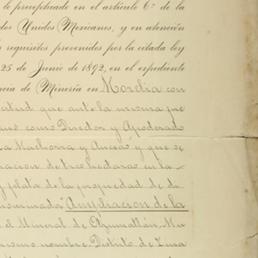 lo preceptuado en el artículo 6º de la
dos Unidos Mexicanos, y en atención
s requisitos prevenidos por la citada ley
25 de Junio de 1892, en el expediente
ncia de Minería en Morelia con
itud que ante la misma pre
como Director y Apoderado
La Carbona y Anexas y que se
de la
y plata de la propiedad de di
nominado "Ampliación de la
el Mineral de
ismo nombre, Distrito de